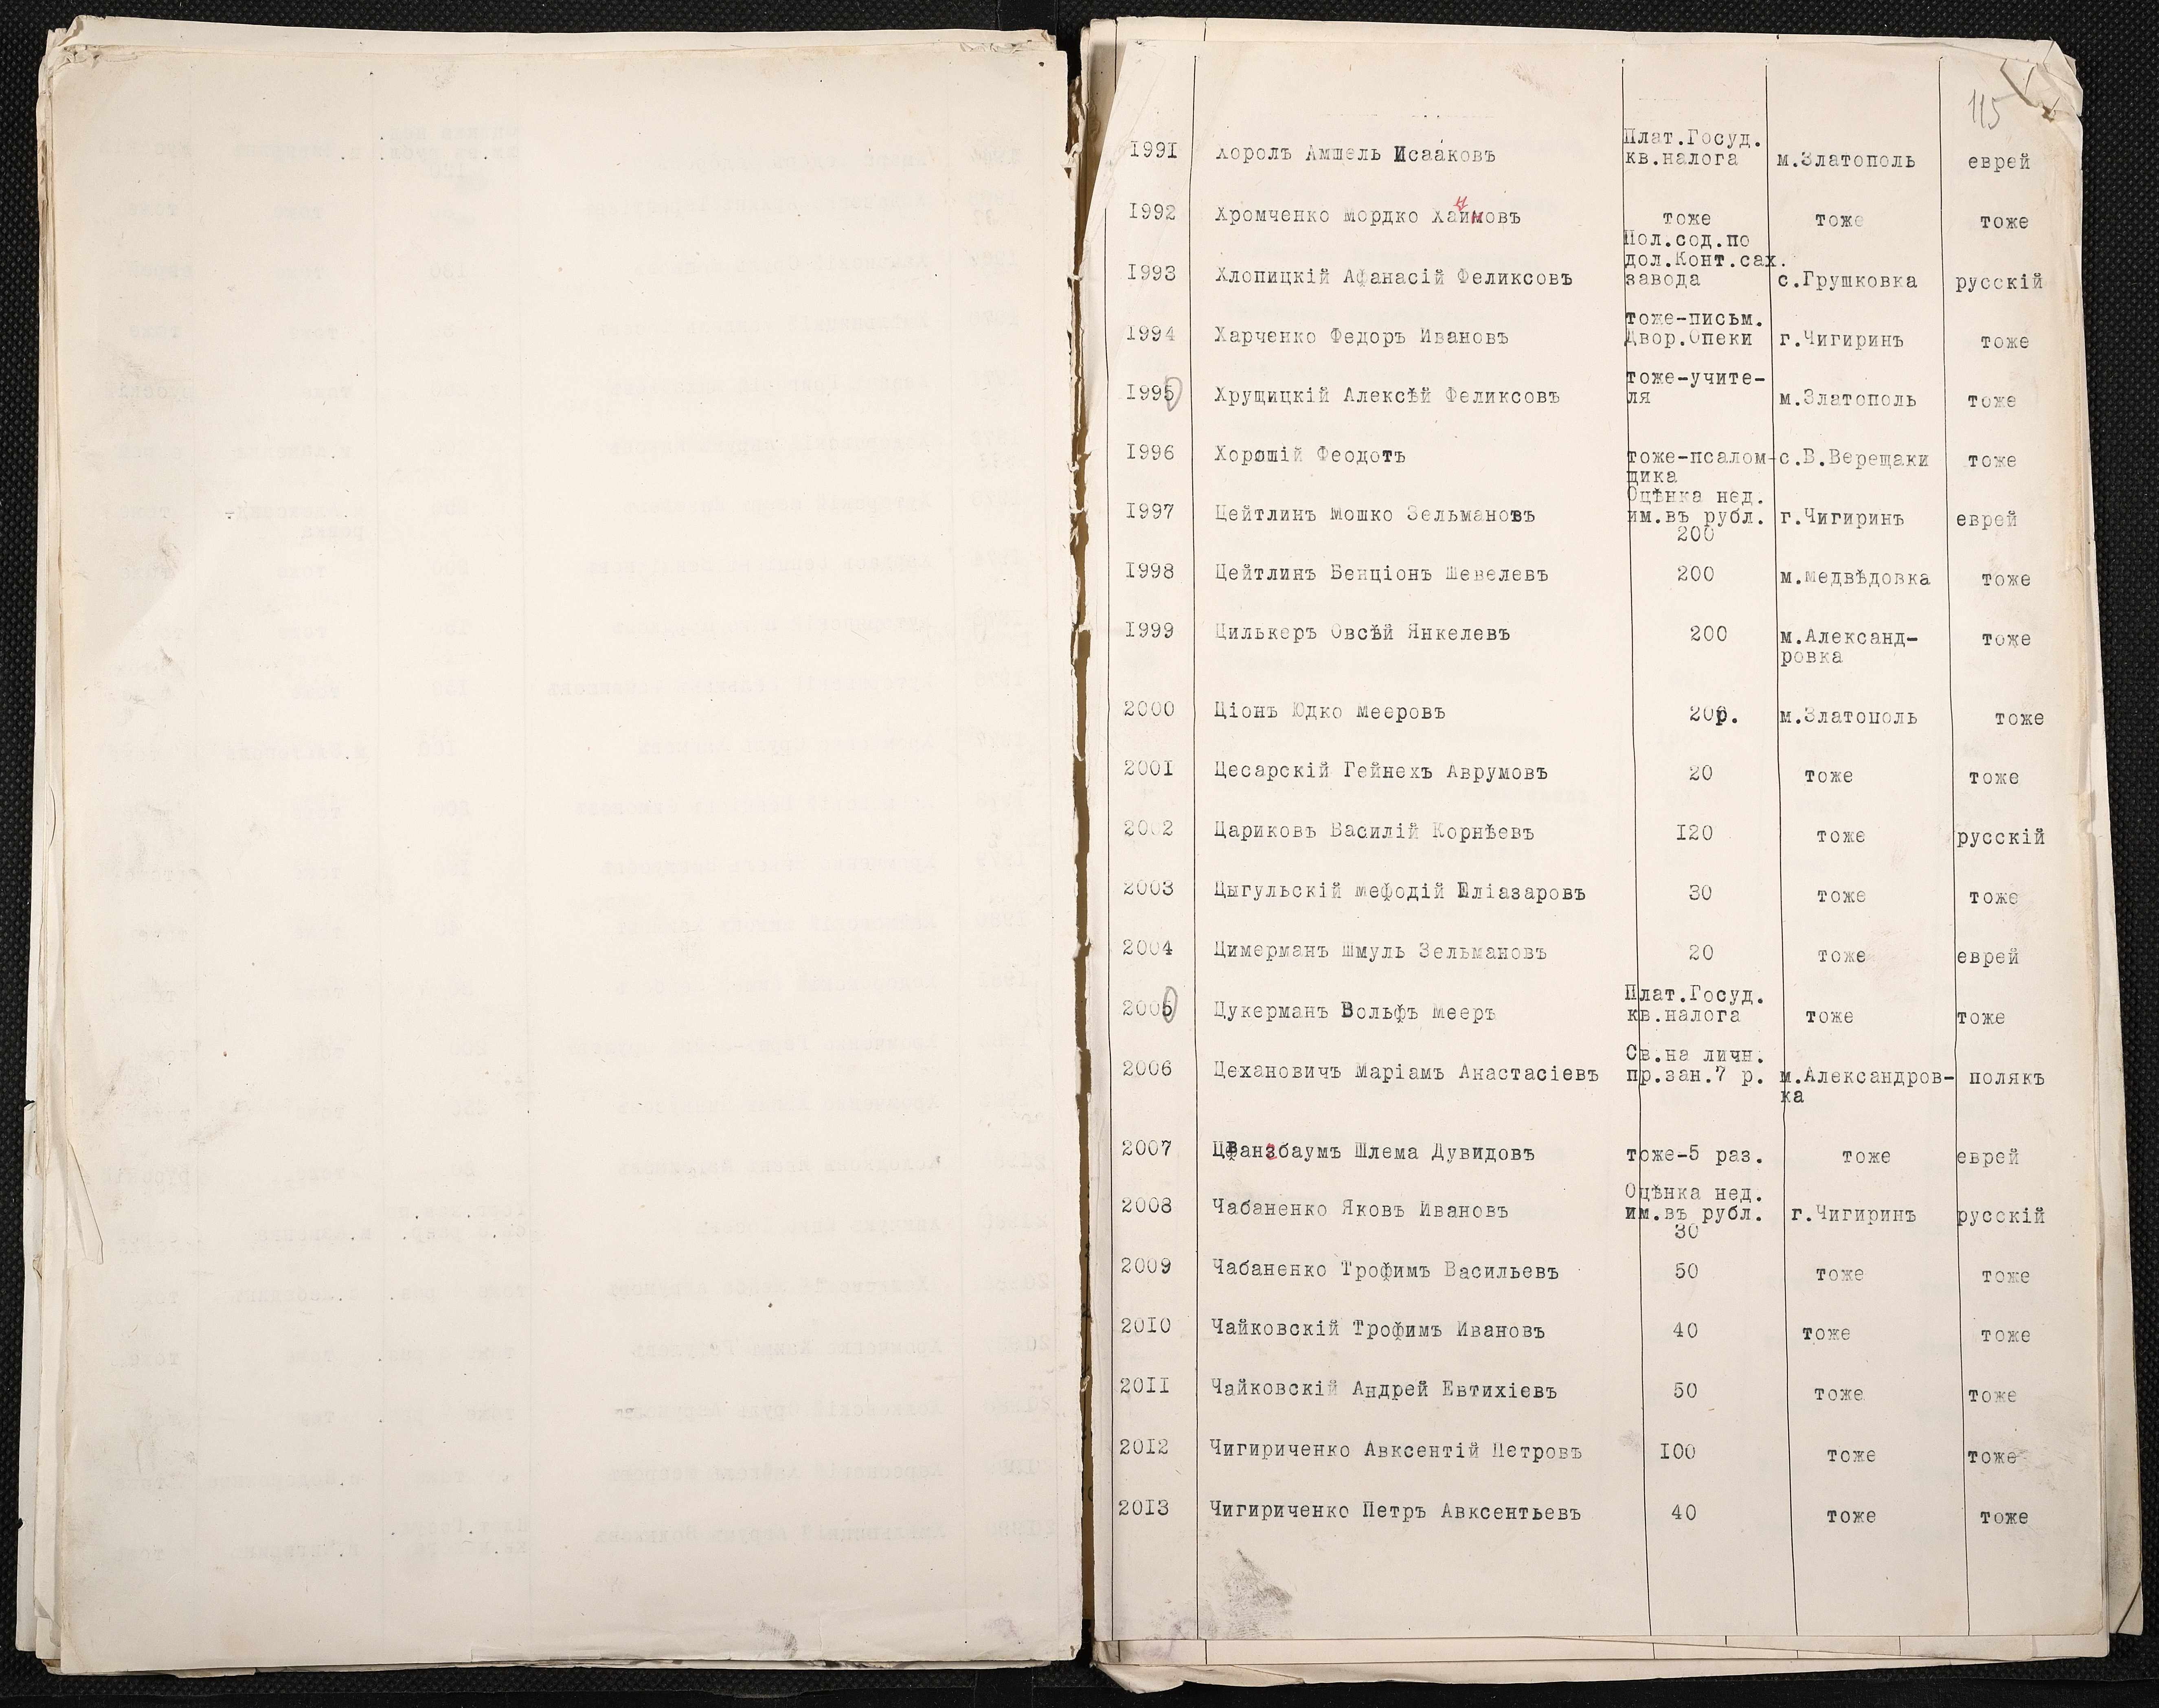 115
1991 Хоролъ Амшель Исааковъ Плат.Госуд. кв.налога м.Златополь еврей
1992 Хромченко Мордко Хаимовъ тоже тоже тоже
1993 Хлопицкій Афанасій Феликсовъ Пол.сод.по дол.Конт.сах. завода с.Грушковка русскій
1994 Харченко Федоръ Ивановъ тоже-письм. Двор.Опеки г.Чигиринъ тоже
1995 Хрущицкій Алексѣй Феликсовъ тоже-учите- ля м.Златополь тоже
1996 Хорошій Феодотъ тоже-псалом- щика с.В.Верещаки тоже
1997 Цейтлинъ Мошко Зельмановъ Оцѣнка нед. им.въ рубл. 200 г.Чигиринъ еврей
1998 Цейтлинъ Бенціонъ Шевелевъ 200 м.Медвѣдовка тоже
1999 Цилькеръ Овсѣй Янкелевъ 200 м.Александ- ровка тоже
2000 Ціонъ Юдко Мееровъ 20р. м.Златополь тоже
2001 Цесарскій Гейнехъ Аврумовъ 20 тоже тоже
2002 Цариковъ Василій Корнѣевъ 120 тоже русскій
2003 Цыгульскій Мефодій Еліазаровъ 30 тоже тоже
2004 Цимерманъ Шмуль Зельмановъ 20 тоже еврей
2005 Цукерманъ Вольфъ Мееръ Плат.Госуд. кв.налога тоже тоже
2006 Цехановичъ Маріамъ Анастасіевъ Св.на личн. пр.зан.7 р. м.Александров- ка полякъ
2007 Цванзбаумъ Шлема Дувидовъ тоже-5 раз. тоже еврей
2008 Чабаненко Яковъ Ивановъ Оцѣнка нед. им.въ рубл. 30 г.Чигиринъ русскій
2009 Чабаненко Трофимъ Васильевъ 50 тоже тоже
2010 Чайковскій Трофимъ Ивановъ 40 тоже тоже
2011 Чайковскій Андрей Евтихіевъ 50 тоже тоже
2012 Чигириченко Авксентій Петровъ 100 тоже тоже
2013 Чигириченко Петръ Авксентьевъ 40 тоже тоже